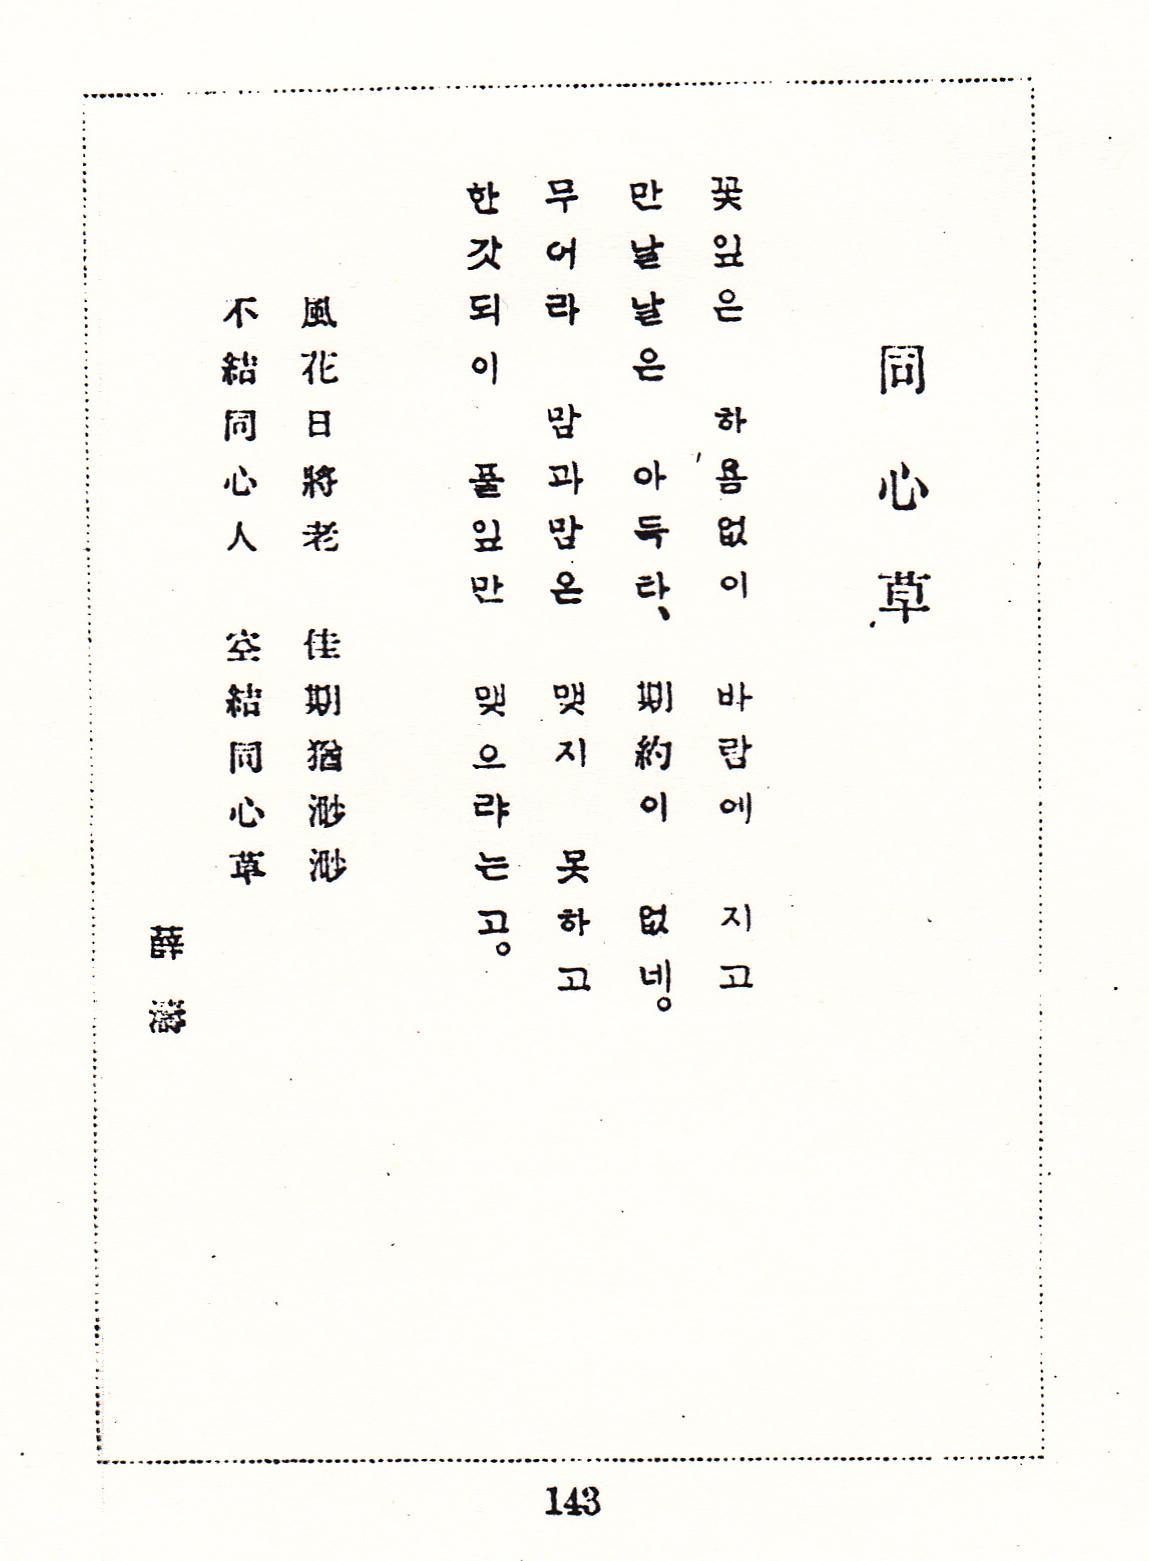 同心草
꽃잎은 하욤없이 바람에 지고
만날날은 아득타、 期約이 없네。
무어라 맘과맘은 맺지 못하고
한갓되이 풀잎만 맺으랴는고。
風花日將老 佳期猶渺渺
不結同心人 空結同心草
薛濤
143